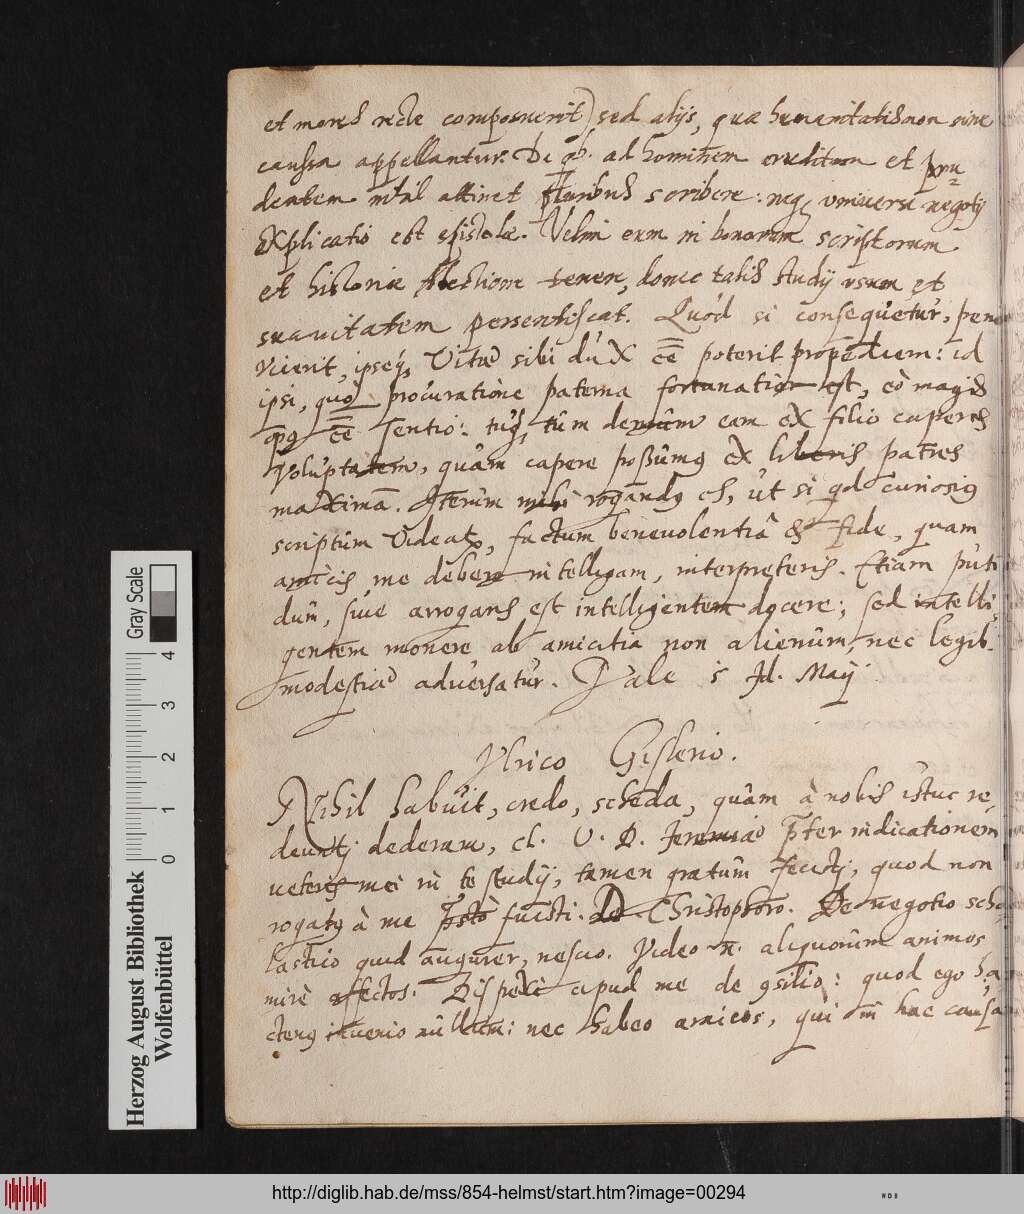 et mores recte composuerit) sed alijs, quæ humanitatis non sine
caussa appellantur. De qb. ad hominem eruditum et pru=
dentem nihil attinet pluribus scribere: neq; universi negotij
explicatio est epistolæ. Velim eum in bonorum scriptorum
et historiæ lectione tenere, donec talis studij usum et
suavitatem persentiscat. Quod si consequetur, perve
vicerit, ipseq; vitæ sibi dux eẽ poterit propediem: id
ipsi, quo procuratione paterna fortunatior est, eò magis
eẽ sentio: tuq; tùm demùm eam ex filio caperes
voluptatem, quàm capere possumus ex liberis patres
maximã. Iterùm mihi rogandus es, ut si qd curiosius
scriptùm videatur, factum benevolentiâ & fide, quam
amicis me debere intelligam, interpreteris. Etiam puti
dum, sive arrogans est intelligentem docere; sed intelli,
gentem monere ab amicitia non alienùm, nec legib.
modestiæ adversatur. Vale 5 Id. Maij
Ulrico Gislerio.
Nihil habuit, credo, scheda, quàm à nobis istuc re,
deunti dederam, cl. V. D. Ieremiæ pter indicationem
veteris mei in te studij, tamen gratùm fecisti, quod non
rogatus à me psto fuisti. Christophoro. De negotio scho
lastico quid augurer, nescio. Video n. aliquorùm animos
mirè affectos. Disperii apud me de consilio: quod ego ha
ctenus invenio nullum: nec habeo amicos, qui in hac causa
Herzog August Bibliothek
Wolfenbüttel
Gray Scale
0 1 2 3 4
http://diglib.hab.de/mss/854-helmst/start.htm?image=00294